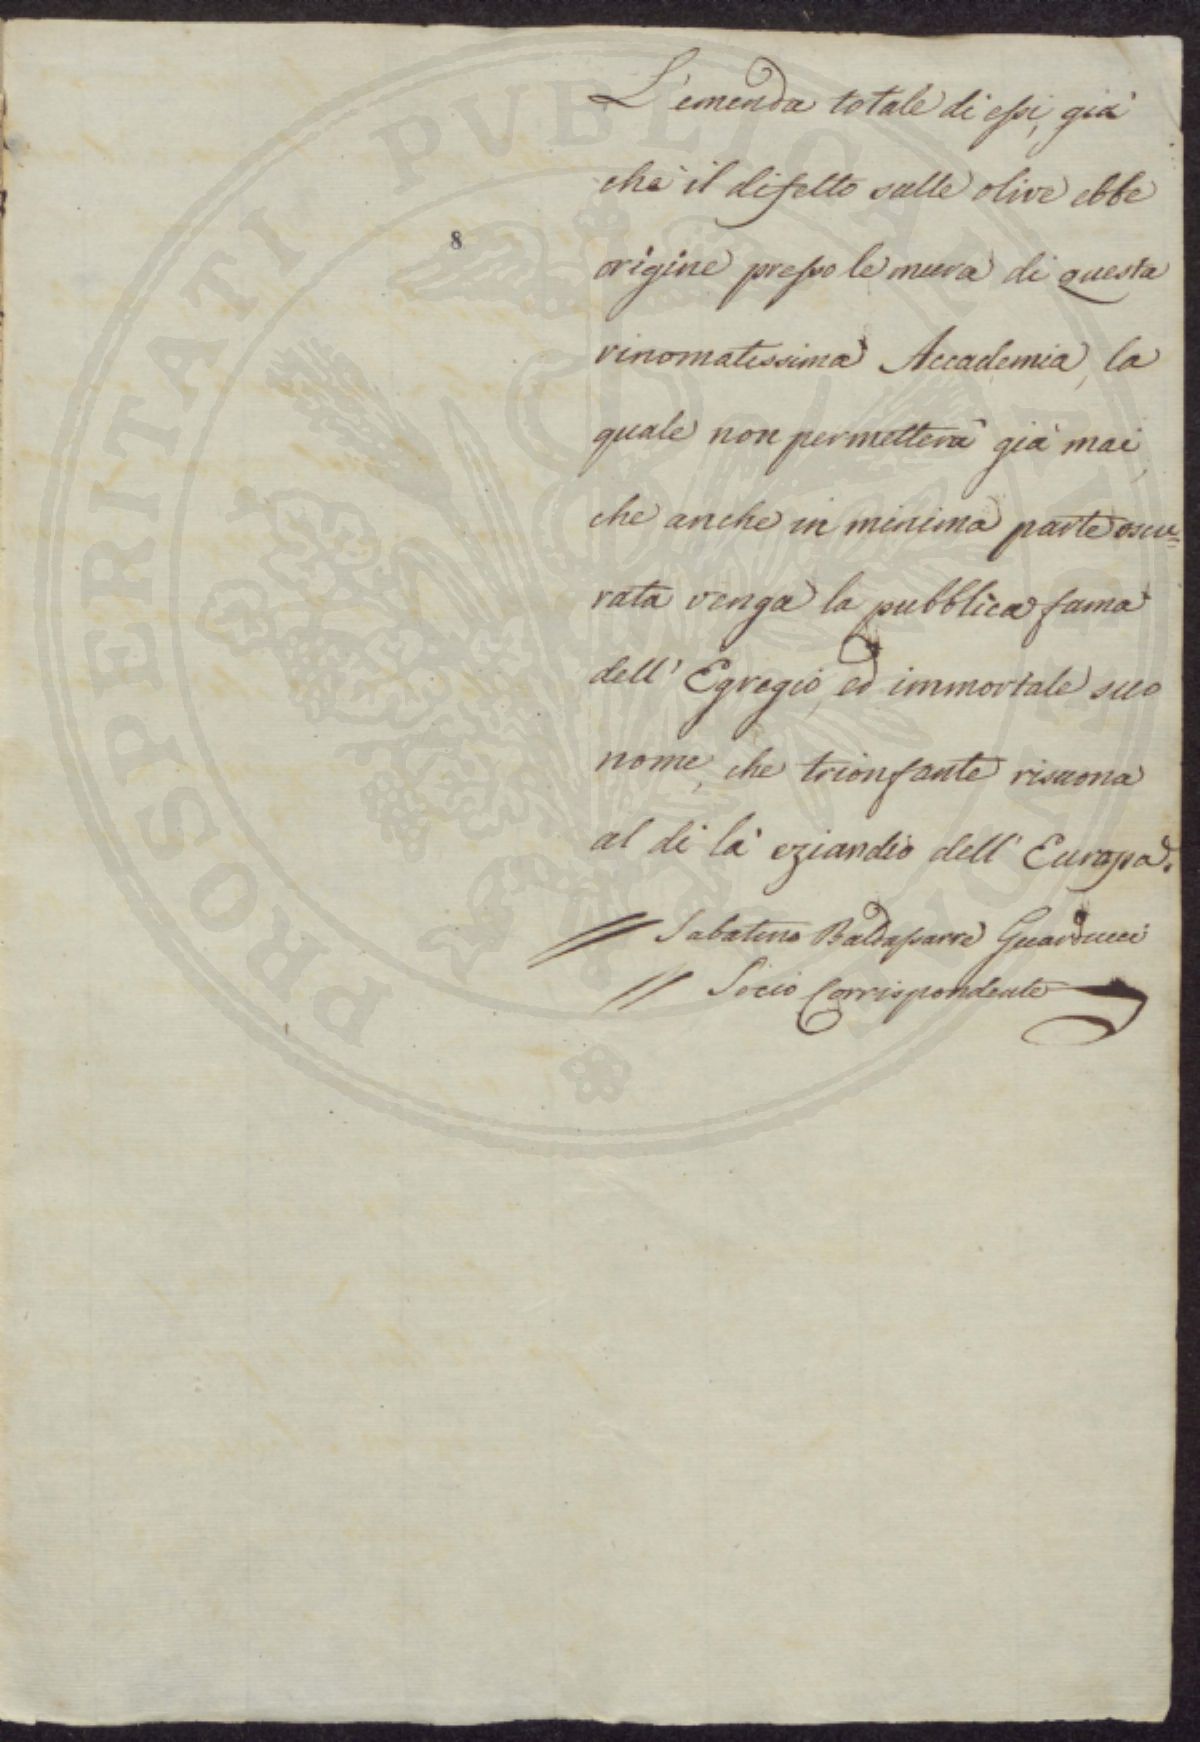 L'emenda totale di essi, già
chè il difetto sulle olive ebbe
origine presso le mura di questa
rinomatissima Accademia, la
quale non permetterà già mai,
che anche in minima parte oscu=
rata venga la pubblica fama
dell' Egregio, ed immortale suo
nome, che trionfante risuona
al di là eziandio dell' Europa.
// Sabatino Baldassarre Guarducci
// Socio Corrispondente
8
PROSPERITATI PUBLICAE AUGENDAE